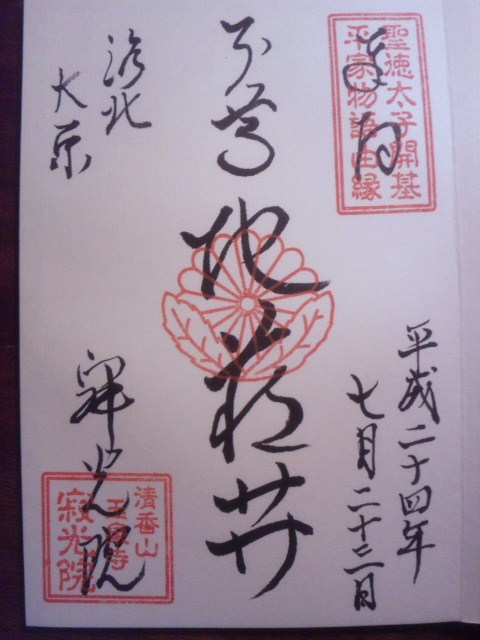 奉拝
聖徳太子開基
平家物語由縁
平成二十四年
七月二十二日
本尊
地蔵𦬇
洛北
大原
寂光院
清香山
玉泉寺
寂光院